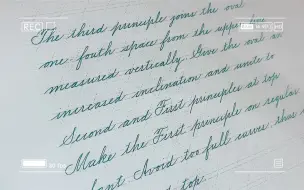 REC
The third principle joins the oval
one-fourth space from the upper
measured vertically. Give the oval an
increased inclination and unite to
Second and First principles at top
Make the First principle on regular
slant. Avoid too full curves, thus
top.